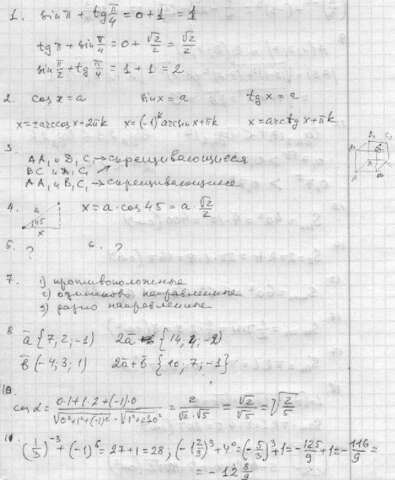 1. sin π + tg π/4 = 0 + 1 = 1
tg π + sin π/4 = 0 + √2/2 = √2/2
sin π/2 + tg π/4 = 1 + 1 = 2
2. cos x = a sin x = a tg x = a
x = ± arccos x + 2πk x = (-1)^k arcsin x + πk x = arctg x + πk
3.
AA₁ и D₁C₁ → скрещивающиеся
BC и A₁C₁ ↗
AA₁ и B₁C₁ → скрещивающиеся
4. a 45 x x = a · cos 45 = a · √2/2
5. ? 6. ?
7. 1) противоположные
2) одинаково направленные
3) разно направленные
8 ā {7, 2, -1) 2ā {14, 4, -2)
b̄ (-4, 3, 1) 2ā + b̄ {10, 7, -1}
10.
cos α = = 2/√2·√5 = √2/√5 = √2/5
11. (1/3)^-3 + (-1)^6 = 27 + 1 = 28, (-1 2/3)^3 + 4^0 = (-5/3)^3 + 1 = -125/9 + 1 = -116/9 =
= -12 8/9